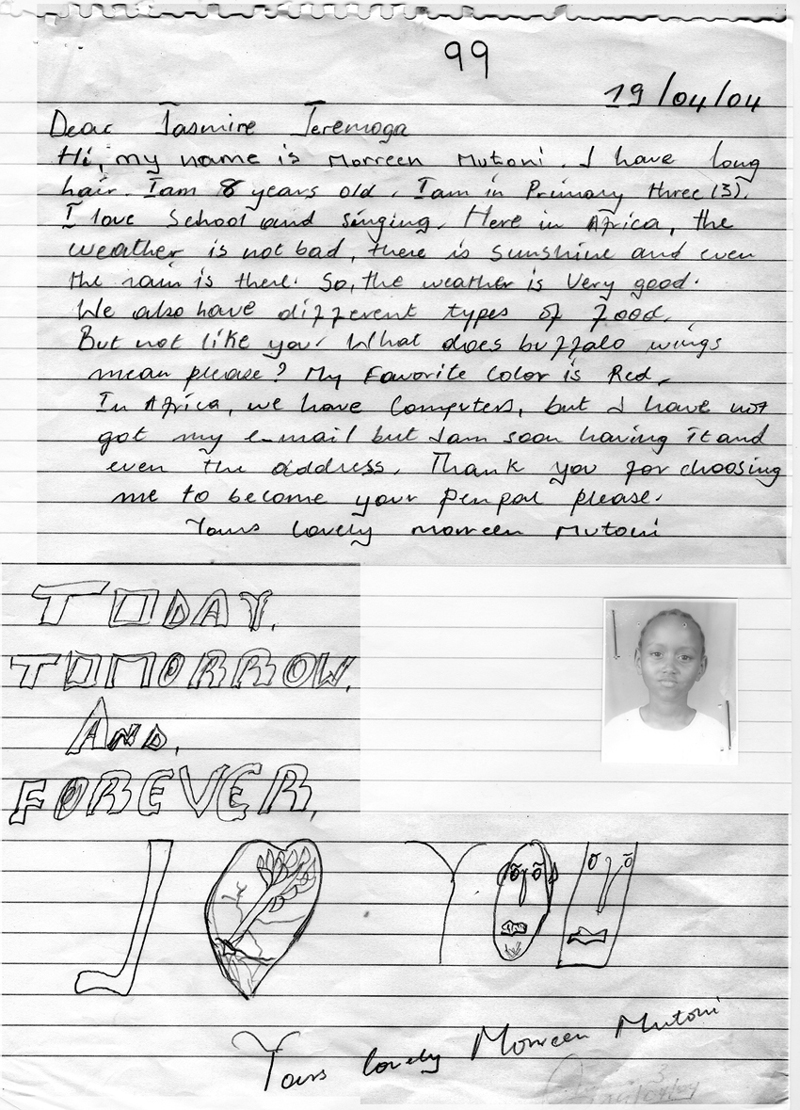 99
19/04/04
Dear Jasmire Jeremoga
Hi, my name is Morreen Mutoni. I have long
hair. I am 8 years old. I am in Primary three (3).
I love School and singing. Here in Africa, the
weather is not bad, there is sunshine and even
the rain is there. So, the weather is Very good.
We also have different types of food.
But not like you. What does buffalo wings
mean please? My Favorite Color is Red.
In Africa, we have Computers, but I have not
got my e-mail but I am soon having it and
even the address. Thank you for choosing
me to become your penpal please.
Yours lovely Morreen Mutoni
TODAY,
TOMORROW,
AND,
FOREVER,
I YOU
Yours lovely Morreen Mutoni